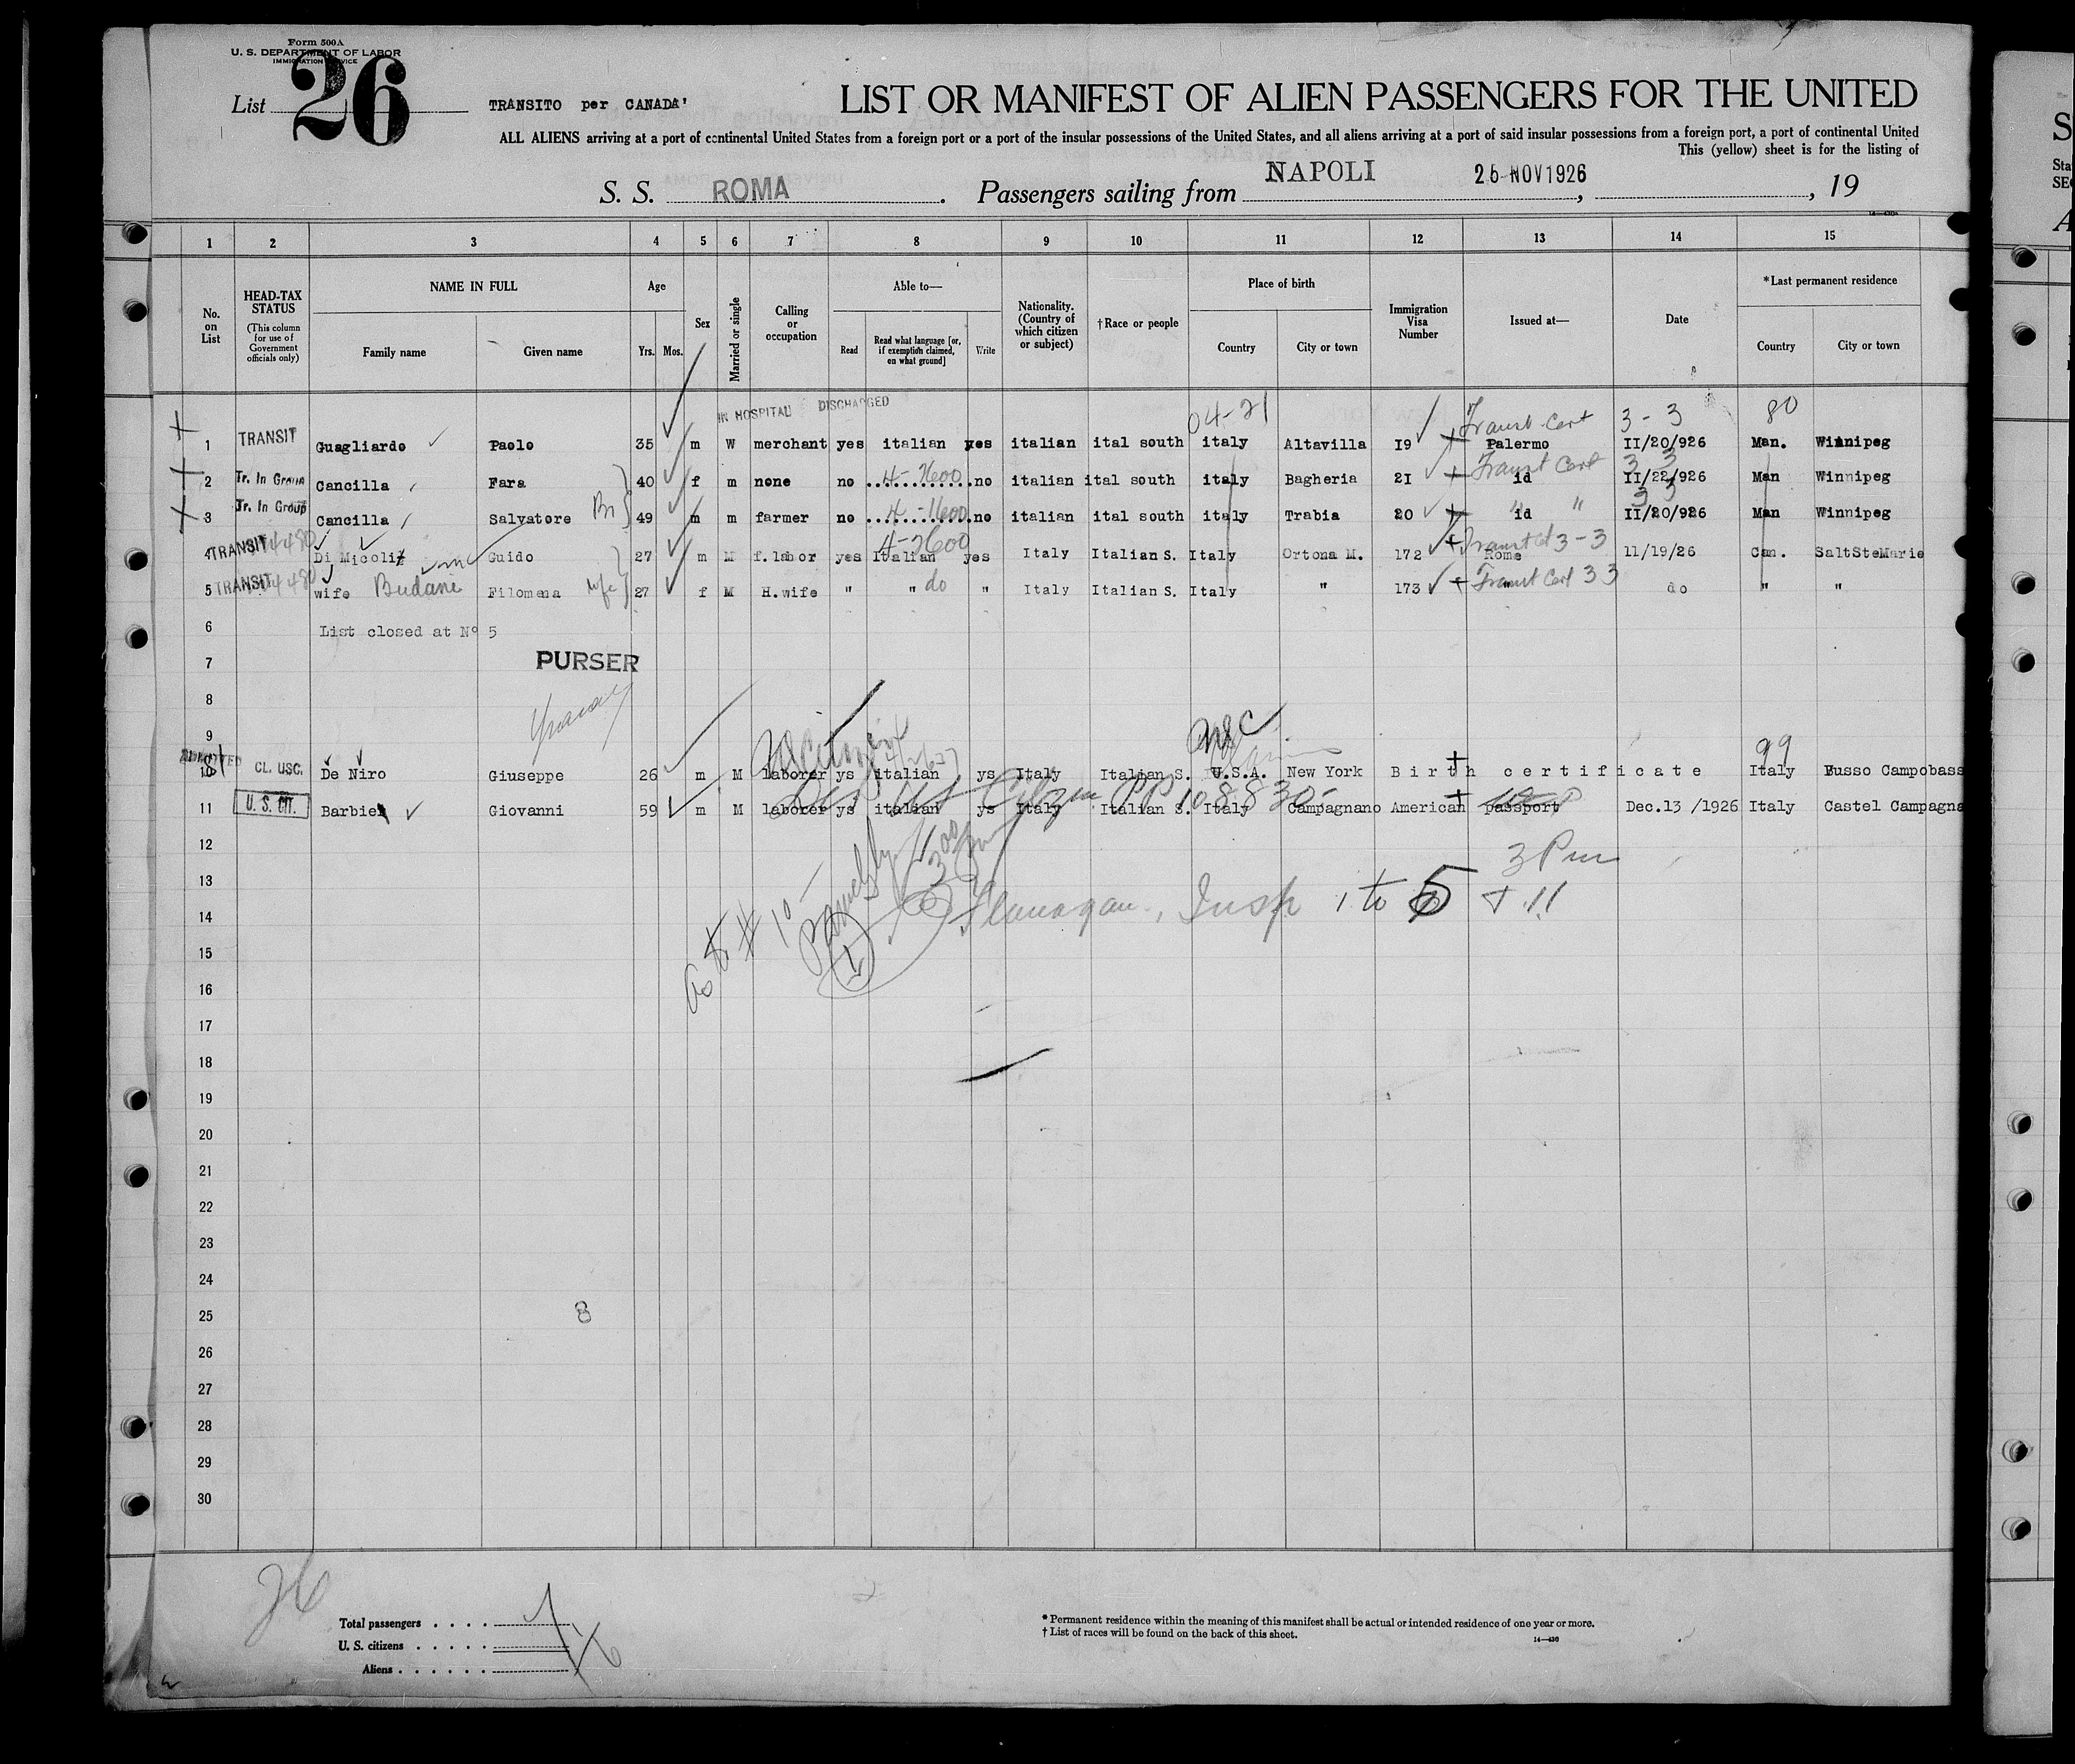 Form 500A
U. S. DEPARTMENT OF LABOR
IMMIGRATION SERVICE
List 26
TRANSITO per CANADA'
LIST OR MANIFEST OF ALIEN PASSENGERS FOR THE UNITED
ALL ALIENS arriving at a port of continental United States from a foreign port or a port of the insular possessions of the United States, and all aliens arriving at a port of said insular possessions from a foreign port, a port of continental United
This (yellow) sheet is for the listing of
S. S. ROMA. Passengers sailing from NAPOLI 26 NOV 1926, , 19
1 2 3 4 5 6 7 8 9 10 11 12 13 14 15
No. on List
HEAD-TAX STATUS
(This column for use of Government officials only)
NAME IN FULL
Family name Given name
Age
Yrs. Mos.
Sex
Married or single
Calling or occupation
Able to—
Read
Read what language [or, if exemption claimed, on what ground]
Write
Nationality. (Country of which citizen or subject)
†Race or people
Place of birth
Country City or town
Immigration Visa Number
Issued at—
Date
*Last permanent residence
Country City or town
IN HOSPITAL DISCHARGED
04-21 Transit Cert 3-3 80
1 TRANSIT Guagliardo Paolo 35 m W merchant yes italian yes italian ital south italy Altavilla I9 Palermo II/20/926 Man. Winnipeg
4-2600 Transit Cert 3 3
2 Tr. In Group Cancilla Fara 40 f m none no no italian ital south italy Bagheria 2I id II/22/926 Man Winnipeg
4-1600 " " 3 3
3 Tr. In Group Cancilla Salvatore 49 m m farmer no no italian ital south italy Trabia 20 id II/20/926 Man Winnipeg
4-2600 3-3
4 TRANSIT Di Micoli Guido 27 m M f. labor yes Italian yes Italy Italian S. Italy Ortona M. 172 Rome 11/19/26 Can. SaltSteMarie
5 TRANSIT wife Budani Filomena wife 27 f M H. wife " " do " Italy Italian S. Italy " 173 Transit Cert 3 3 do " "
6 List closed at Nº 5
7 PURSER
8
9
99
10 ADMITTED CL. USC. De Niro Giuseppe 26 m M laborer ys italian ys Italy Italian S. U.S.A. New York Birth certificate Italy Busso Campobass
US Citizen PP 108830-
11 U. S. CIT. Barbie Giovanni 59 m M laborer ys italian ys Italy Italian S. Italy Campagnano American passport Dec.13 /1926 Italy Castel Campagna
12
3 Pm
13
14 Flanagan, Insp 1 to 5 + 11
As to # 10-
15
16
17
18
19
20
21
22
23
24
25 8
26
27
28
29
30
26
Total passengers
U. S. citizens
Aliens
* Permanent residence within the meaning of this manifest shall be actual or intended residence of one year or more.
† List of races will be found on the back of this sheet.
14—430